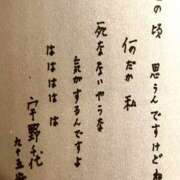 の頃 思うんですけどね
何だか 私
死なないやうな
気がするんですよ
はははは
宇野千代
九十五歳